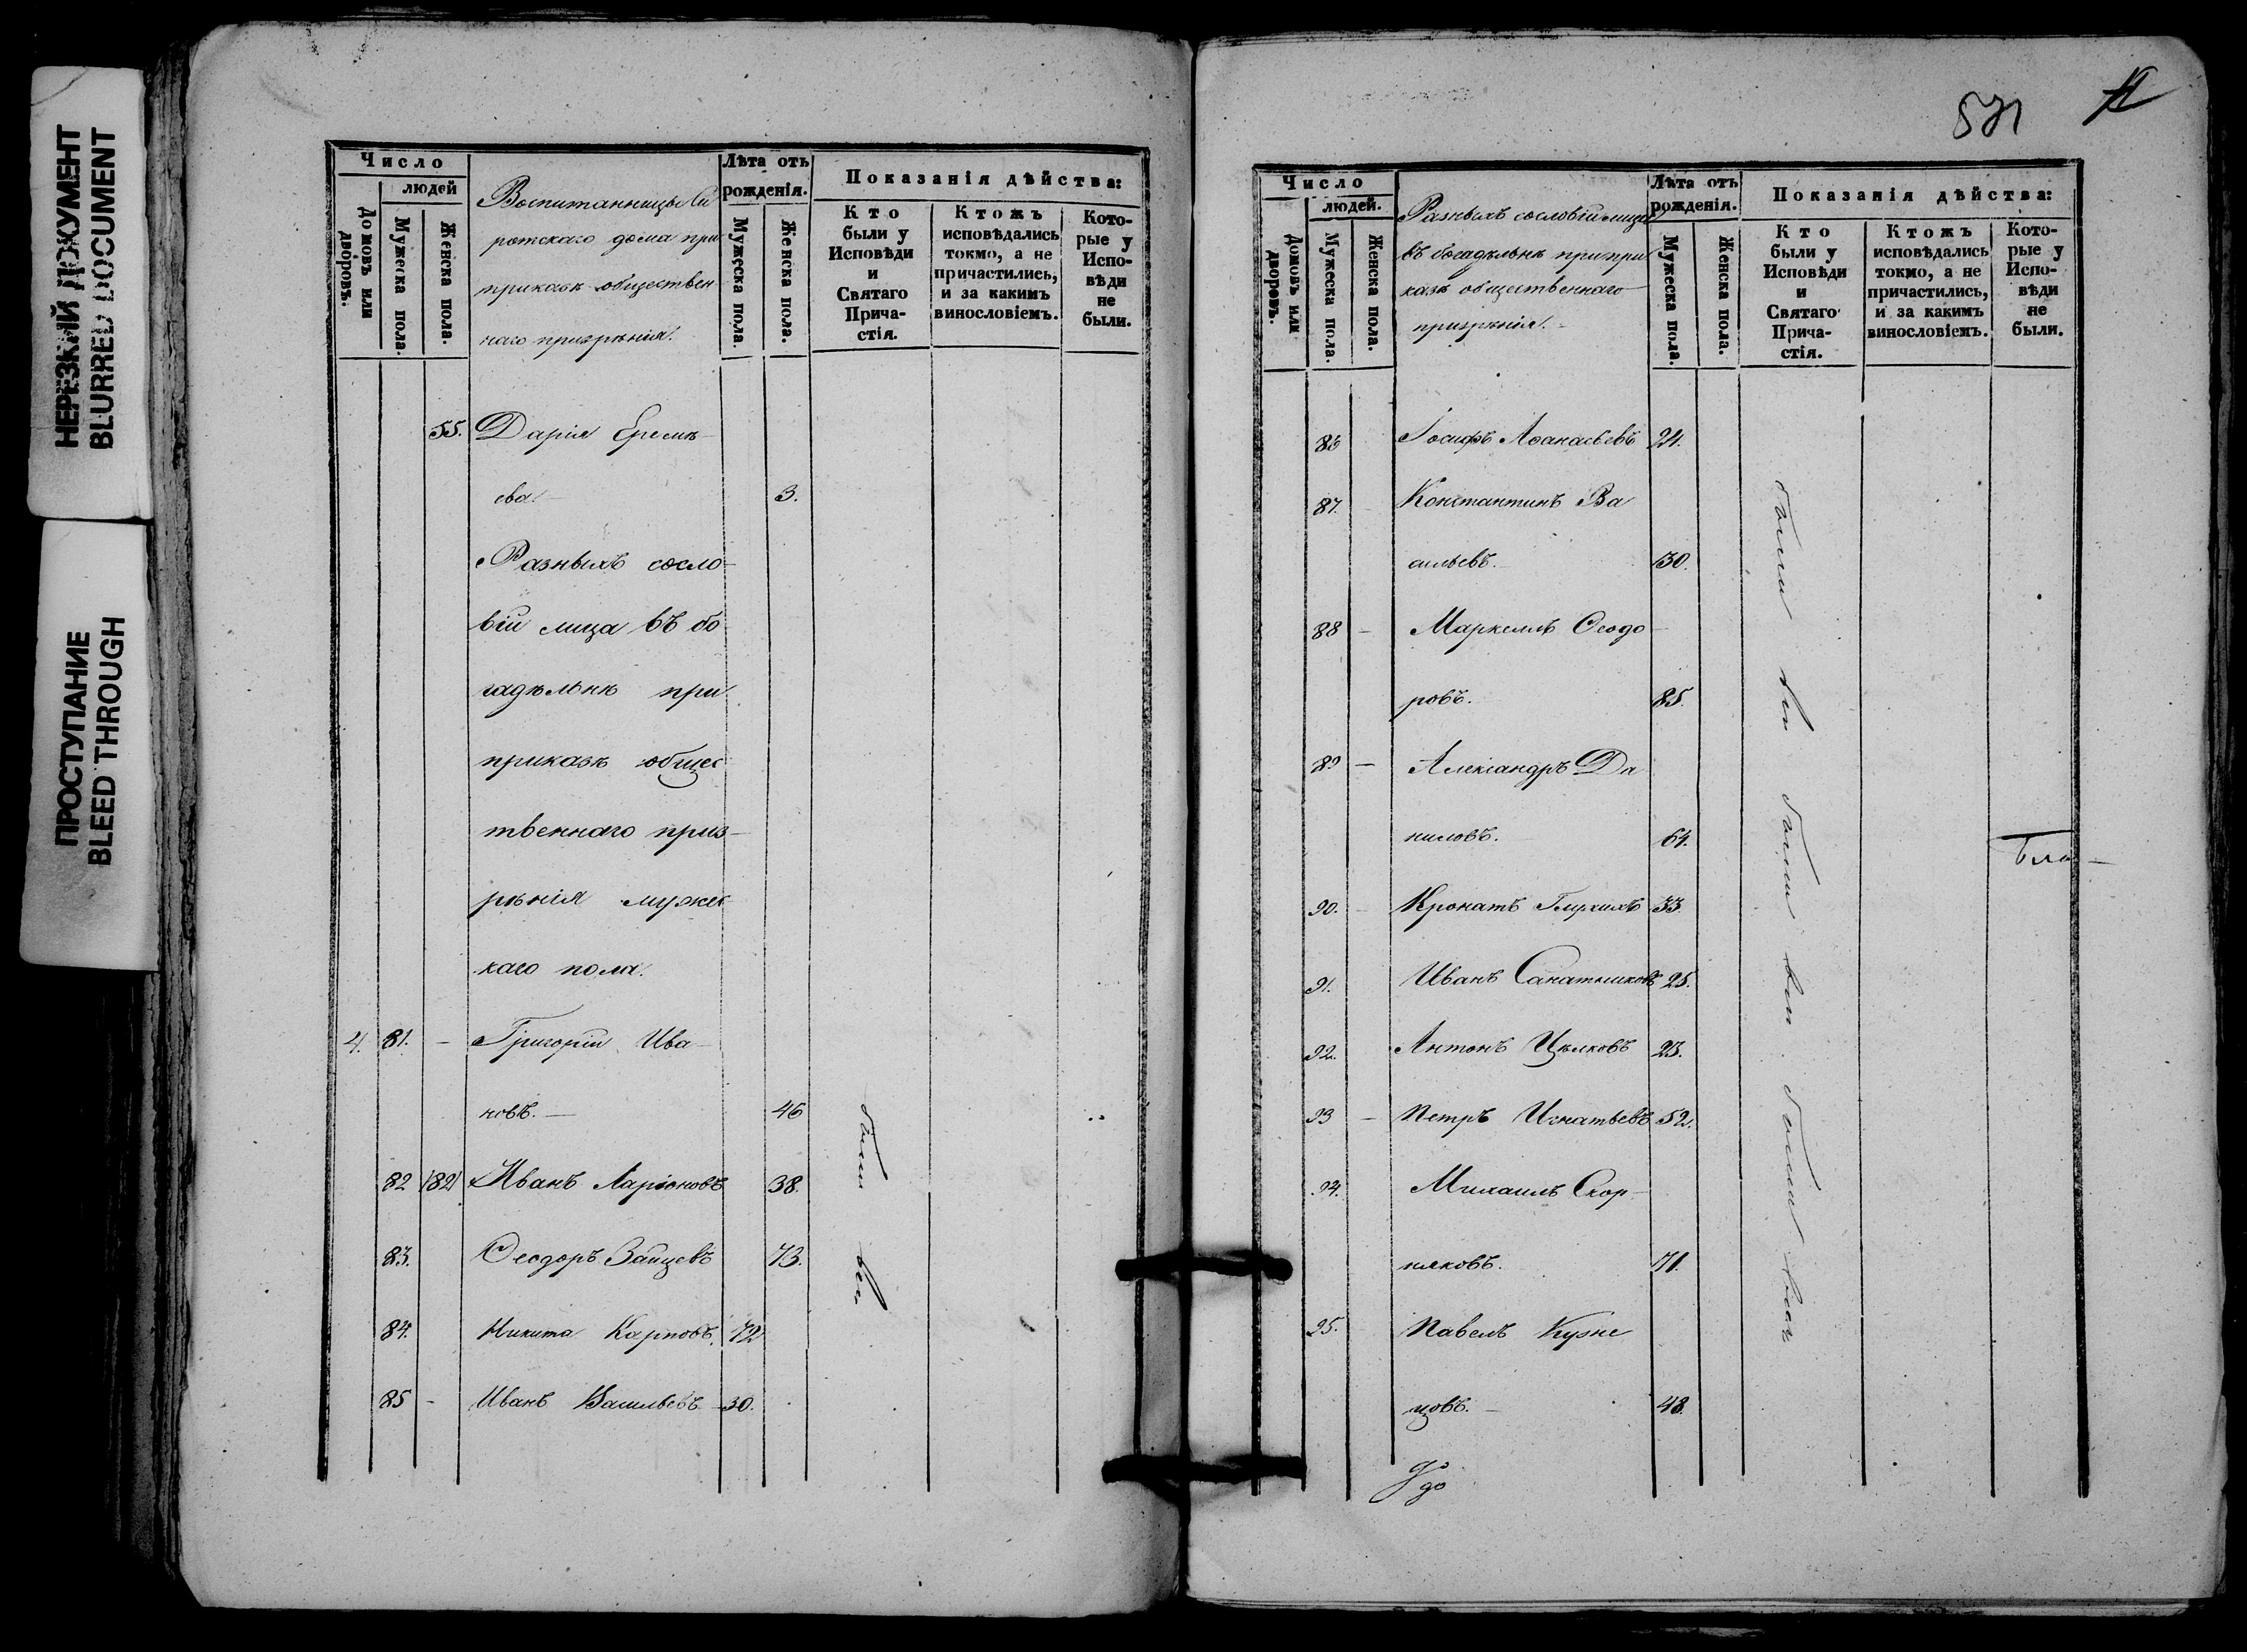 НЕРЕЗКИЙ ДОКУМЕНТ
BLURRED DOCUMENT
ПРОСТУПАНИЕ
BLEED THROUGH
Число
людей
Домовъ или дворовъ.
Мужеска пола.
Женска пола.
Воспитанницы Си
ротскаго дома при
приказѣ обществен
наго призрѣнія.
Лѣта отъ
рожденія.
Мужеска пола.
Женска пола.
Показанія дѣйства:
Кто
были у
Исповѣди
и
Святаго
Прича-
стія.
Ктожъ
исповѣдались
токмо, а не
причастились,
и за какимъ
винословіемъ.
Кото-
рые у
Испо-
вѣди
не
были.
55. Дарія Еремѣ
ева 3.
Разныхъ сосло-
вій лица въ бо
гадѣльнѣ при
приказѣ общес
твеннаго приз-
рѣнія мужес
каго пола.
4. 81. - Григорій Ива-
новъ. 46
82 (82) Иванъ Ларіоновъ 38.
83. Ѳеодоръ Зайцевъ 73.
84. Никита Карповъ. 72
85 - Иванъ Васильевъ 30.
были вси
571
Число
людей.
Домовъ или дворовъ.
Мужеска пола.
Женска пола.
Разныхъ сословій лица
въ богадѣльнѣ при при
казѣ общественнаго
призрѣнія.
Лѣта отъ
рожденія.
Мужеска пола.
Женска пола.
Показанія дѣйства:
Кто
были у
Исповѣди
и
Святаго
Прича-
стія.
Ктожъ
исповѣдались
токмо, а не
причастились,
и за какимъ
винословіемъ.
Кото-
рые у
Испо-
вѣди
не
были.
86 Іосифъ Аѳанасьевъ 24.
87. Константинъ Ва
сильевъ. 30.
88 - Маркеллъ Ѳеодо-
ровъ. 85.
89 - Александръ Да
ниловъ. 64.
90. Глухихъ 33.
91. Иванъ 25.
92. Антонъ Цѣлковъ 23.
93 - Петръ Игнатьевъ 52.
94. Михаилъ Скор-
няковъ. 71.
95. Павелъ Кузне
цовъ. 48.
были вси были вси были вси